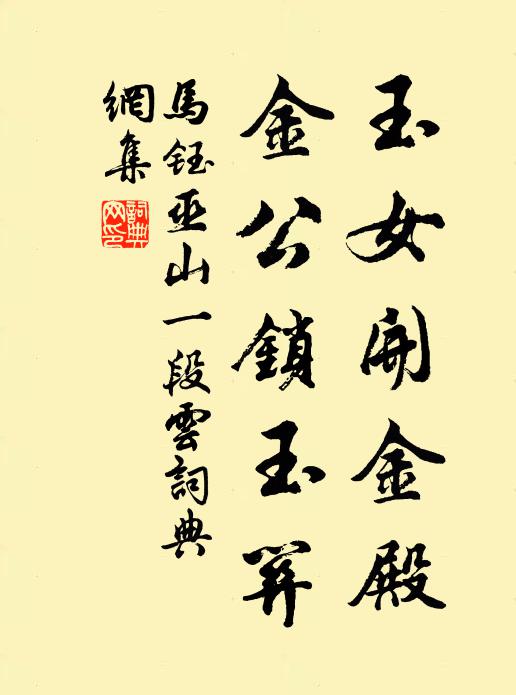 玉女開金殿
金公鎖玉關
馬鈺巫山一段雲詞典
網集
詞典
网印